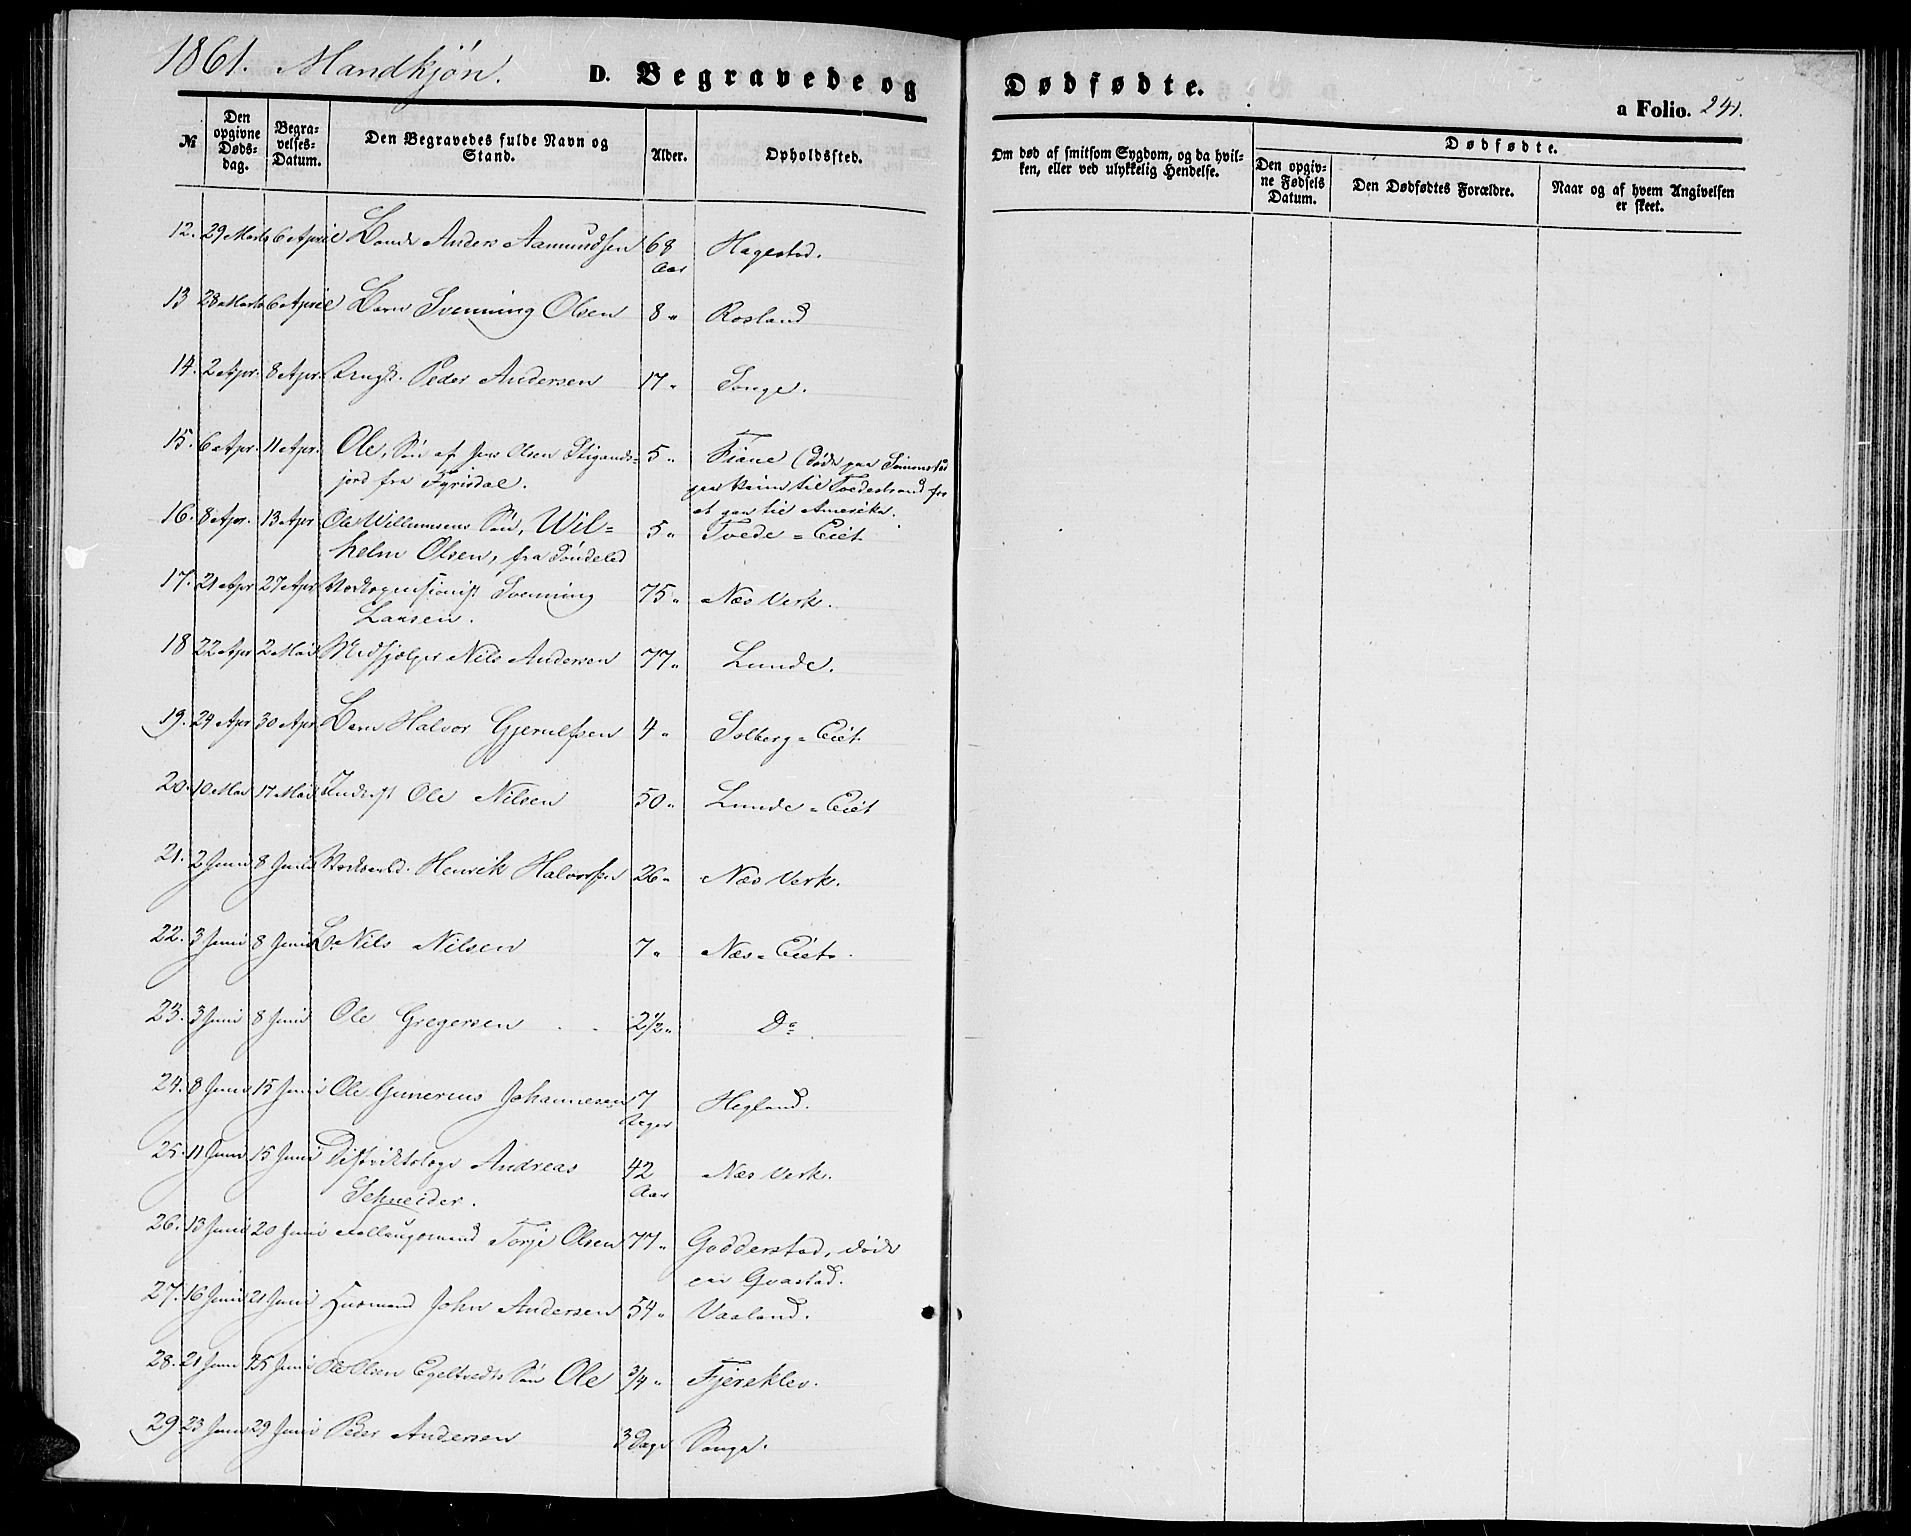 1861. Mandkjön.
D. Begravede og
Dødfødte.
a Folio. 241.
№
Den opgivne Døds-dag.
Begra-velses-Datum.
Den Begravedes fulde Navn og Stand.
Alder.
Opholdssted.
Om død af smitsom Sygdom, og da hvil-
ken, eller ved ulykkelig Hendelse.
Dødfødte.
Den opgiv-
ne Fødsels
Datum.
Den Dødfødtes Forældre.
Naar og af hvem Angivelsen
er skeet.
12. 29 Marts 6 April Bonde Anders Aamundsen 68 Aar Hagestad.
13 28 Marts 6 April Barn Svenning Olsen 8 " Rosland
14. 2 Apr. 8 Apr. Peder Andersen 17 " Songe.
15. 6 Apr. 11 Apr. Ole, Sön af Jens Olsen Stigands- 5 " Fiane (döde paa
jord fra Fyrisdal. paa Reise til Tvedestrand for
at gaa til Amerika.
16. 8 Apr. 13 Apr Ole Willumsens Sön, Wil= 5 " Tvede = Eiet
helm Olsen, fra Söndeled
17. 21 Apr 27 Apr Verkspensionist Svenning 75 " Næs Verk.
Larsen.
18 22 Apr 2 Mai Medhjælper Nils Andersen 77 " Lunde.
19. 24 Apr 30 Apr. Barn Halvor Gjerulfsen 4 " Solberg = Eiet
20. 10 Mai 17 Mai Inderst Ole Nilsen 50 " Lunde = Eiet
21. 2 Juni 8 Juni Henrik Halvorsen 26 " Næs Verk.
22. 3 Juni 8 Juni B. Nils Nilsen 7 " Næs = Eiet.
23. 3 Juni 8 Juni Ole Gregersen 2 1/2 " Do
24. 8 Juni 15 Juni Ole Gunerius Johannesen 7 Uger Hegland.
25. 11 Juni 15 Juni Distriktslæge Andreas 42 Aar Næs Verk.
Schneider.
26. 13 Juni 20 Juni Follaugsmand Torje Olsen 77 " Godderstad, döde
paa Gvastad.
27. 16 Juni 21 Juni Husmand John Andersen 54 " Vaaland.
28. 21 Juni 25 Juni Ole Olsen Egeltvedts Sön Ole 3/4 " Fjereklev.
29 23 Juni 29 Juni Peder Andersen 3 Dage Songe.